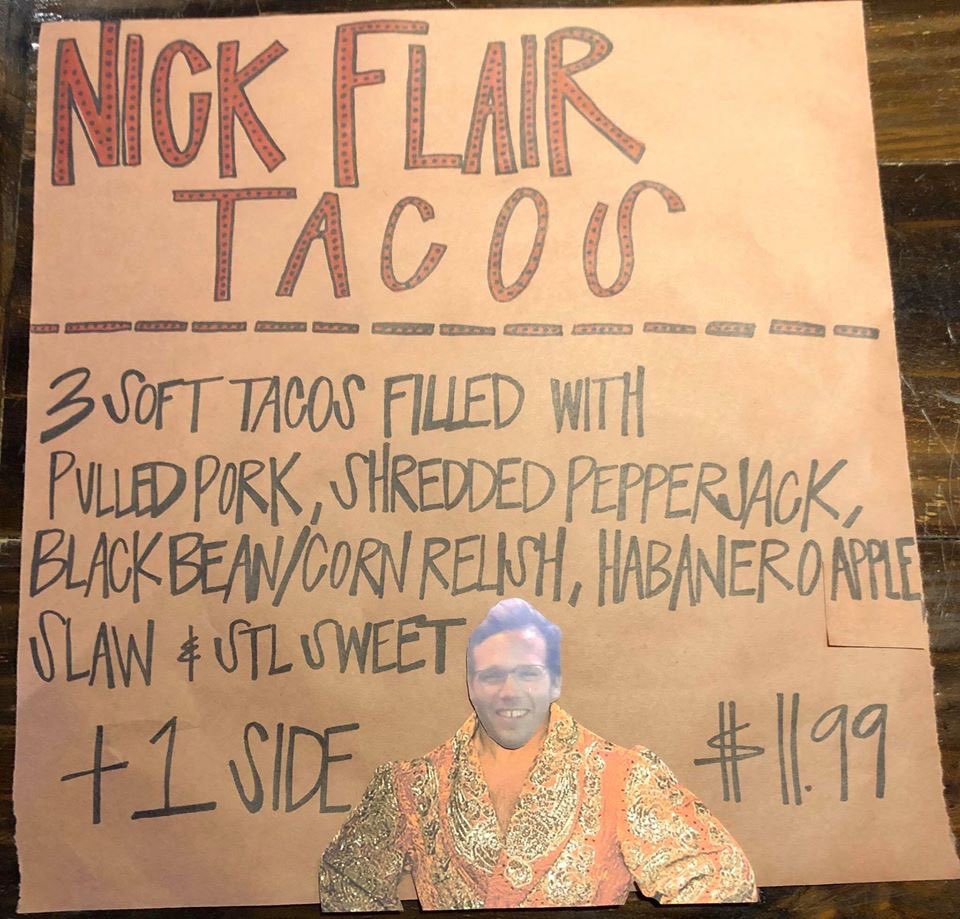 NICK FLAIR
TACOS
3 SOFT TACOS FILLED WITH
PULLED PORK, SHREDDED PEPPERJACK,
BLACK BEAN/CORN RELISH, HABANERO APPLE
SLAW & STL SWEET
+1 SIDE $11.99